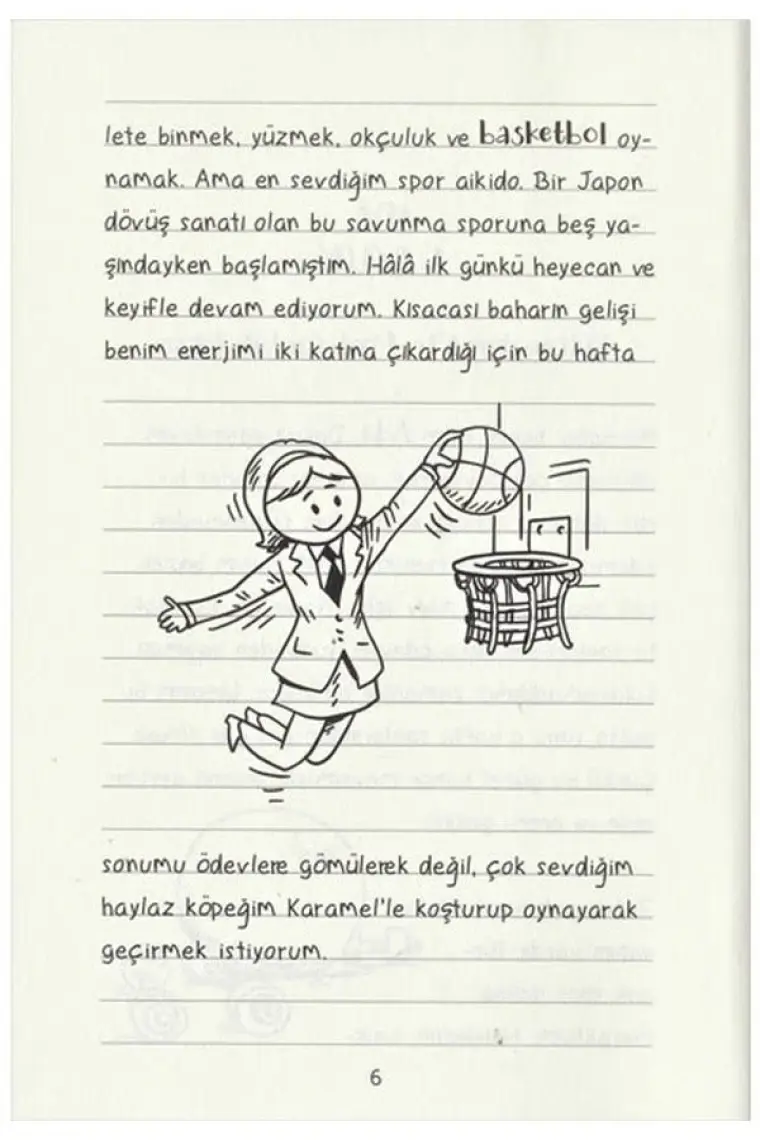 lete binmek, yüzmek, okçuluk ve basketbol oy-
namak. Ama en sevdiğim spor aikido. Bir Japon
dövüş sanatı olan bu savunma sporuna beş ya-
şındayken başlamıştım. Hâlâ ilk günkü heyecan ve
keyifle devam ediyorum. Kısacası baharın gelişi
benim enerjimi iki katına çıkardığı için bu hafta
sonumu ödevlere gömülerek değil, çok sevdiğim
haylaz köpeğim Karamel'le koşturup oynayarak
geçirmek istiyorum.
6